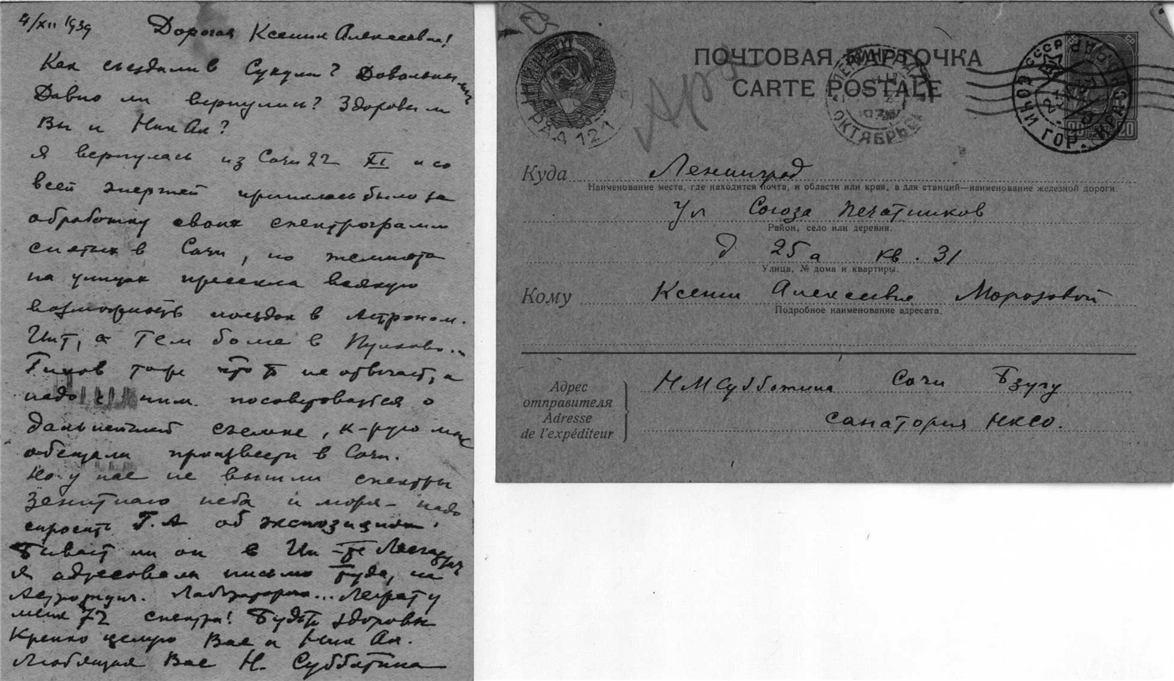 4/XII 1939 Дорогая Ксения Алексеевна!
Как съездили в Сухуми? Довольны ли
Давно ли вернулись? Здоровы ли
Вы и Ник Ал?
Я вернулась из Сочи 22 XI и со
всей энергией принялась было за
обработку своих спектрограмм
снятых в Сочи, но темнота
на улицах пресекла всякую
возможность поездок в Астроном.
Инт, а тем более в Пулково..
Тихов тоже не отвечает, а
надо с ним посоветоваться о
дальнейшей съемке, к-рую мне
обещали произвести в Сочи.
Но у нас не вышли спектры
Зенитного неба и моря - надо
спросить Г.А об экспозициях.
Бывает ли он в Ин-те Лесгафта
Я адресовала письмо туда, на
Лаборатории...
меня 72 спектра! Будьте здоровы
Крепко целую Вас и Ник Ал.
Любящая Вас Н. Субботина
ПОЧТОВАЯ КАРТОЧКА
CARTE POSTALE
ЛЕНИНГРАД 121
ЛЕНИНГРАД
ОКТЯБРЬС
СССР
СОЧИ ГОР. КРАСНОДАР
20 20
Куда Ленинград
Наименование места, где находится почта, и области или края, а для станций—наименование железной дороги.
Ул Союза Печатников
Район, село или деревня.
д 25а кв. 31
Улица, № дома и квартиры.
Кому Ксении Алексеевне Морозовой
Подробное наименование адресата.
Адрес
отправителя
Adresse
de l'expéditeur
НМСубботина Сочи Бзугу
Санатория НКСО.